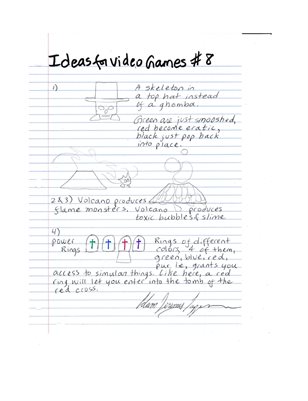 Ideas for Video Games #8
1)
A skeleton in
a top hat instead
of a ghomba.
Green are just smooshed,
red become eratic,
black just pop back
into place.
2 & 3) Volcano produces
flame monsters. Volcano produces
toxic bubbles & slime.
4)
Power
Rings
Rings of different
colors, 4 of them,
green, blue, red,
grants you
access to simular things. Like here, a red
ring will let you enter into the tomb of the
red cross.